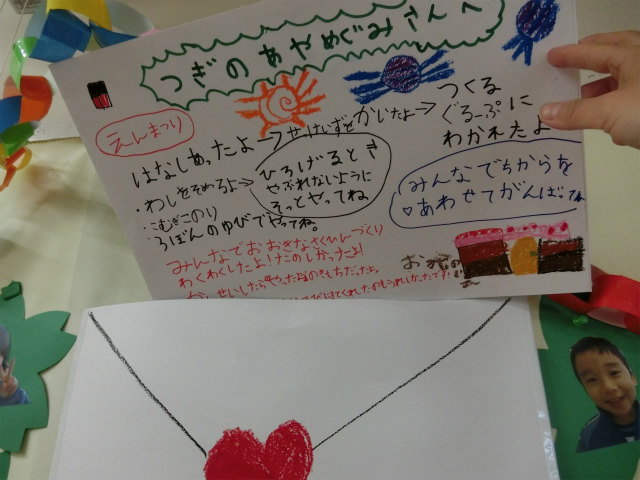 つぎのあやめぐみさんへ
えんまつり
はなしあったよ→せっけいずをかいたよ→つくる
ぐるーぷに
わかれたよ
・わしをそめるよ→
ひろげるとき
やぶれないように
そっとやってね
・こむぎこのり
5ほんのゆびでやってね。
みんなでちからを
♡あわせてがんばってね
みんなでおおきなさくひんづくり
わくわくしたよ!たのしかったよ!
かんせいしたら